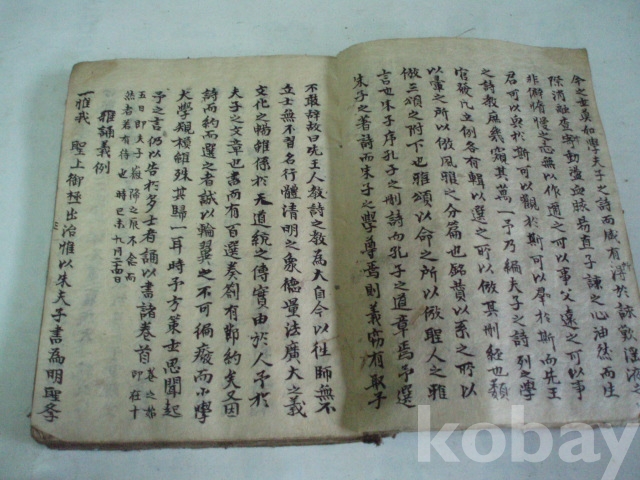 今之士莫如學夫子之詩而感有得於詠歎淫液之
際消融査滓動盪血脉易直子諒之心油然而生
非僻惰慢之志無以作邇之可以事父遠之可以事
君可以興於斯可以觀於斯可以羣於斯而先王
之詩教庶幾窺其萬一予乃編夫子之詩列之學
官發凡立例各有輯以選之所以倣其刪經也類
以彙之所以倣風雅之分篇也銘贊以系之所以
倣三頌之附下也雅頌以命之所以倣聖人之雅
言也朱子序孔子之刪詩而孔子之道章焉予選
朱子之著詩而朱子之學尊焉則義竊有取乎
不敢辞故曰先王人教詩之教為大自今以往師無不
立士無不習名行體清明之象德量法廣大之義
文化之暢雅係於天道統之傳實由於人予於
夫子之文章也書而有百選奏劄有節約矣又因
詩而約而選之者誠以輪翼之不可偏癈而小學
大學規模雖殊其歸一耳時予方策士思聞起
予之言仍以告於多士者誦以書諸卷首
五日即夫子報降之辰不偶而
然者若有待也時己未九月二十四日
雅誦義例
一雅我 聖上御極出治惟以朱夫子書為明聖學
kobay